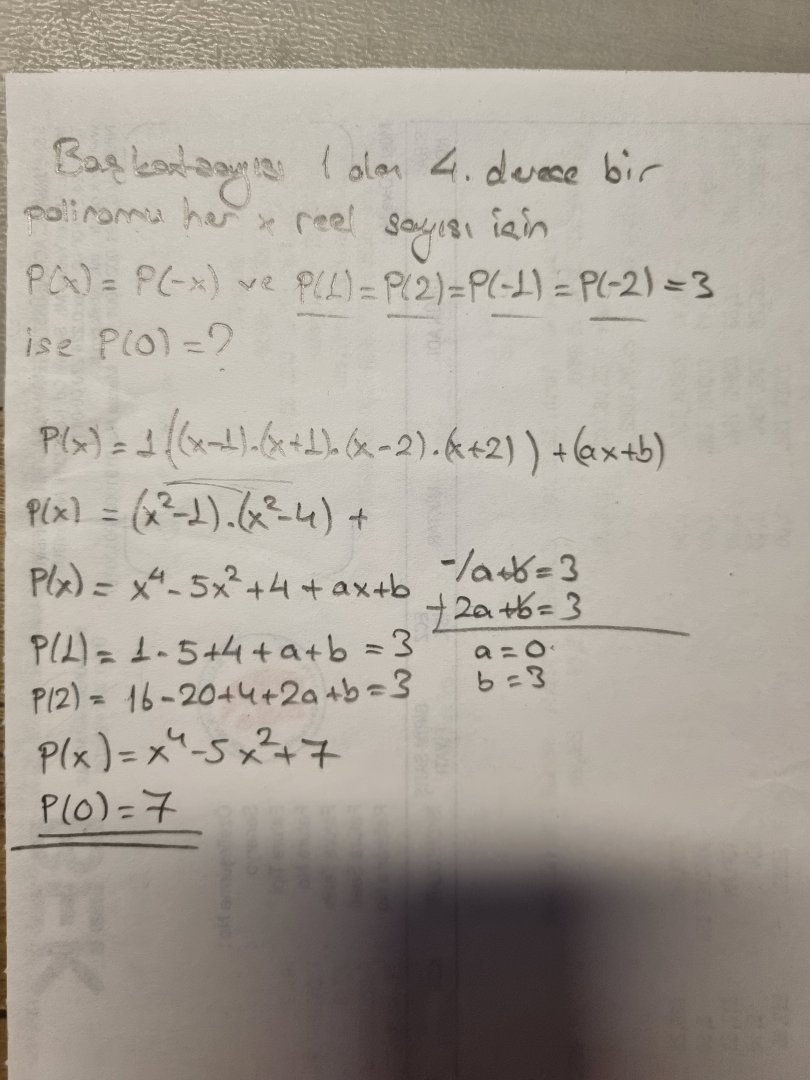 Başkatsayısı 1 olan 4. derece bir
polinomu her x reel sayısı için
P(x) = P(-x) ve P(1) = P(2) = P(-1) = P(-2) = 3
ise P(0) = ?
P(x) = 1 ((x-1).(x+1).(x-2).(x+2)) + (ax+b)
P(x) = (x²-1).(x²-4) +
P(x) = x⁴ - 5x² + 4 + ax+b
P(1) = 1 - 5+4 + a+b = 3
P(2) = 16 - 20+4+2a+b = 3
-/a+b = 3
+ 2a+b = 3
a = 0
b = 3
P(x) = x⁴ - 5x² + 7
P(0) = 7